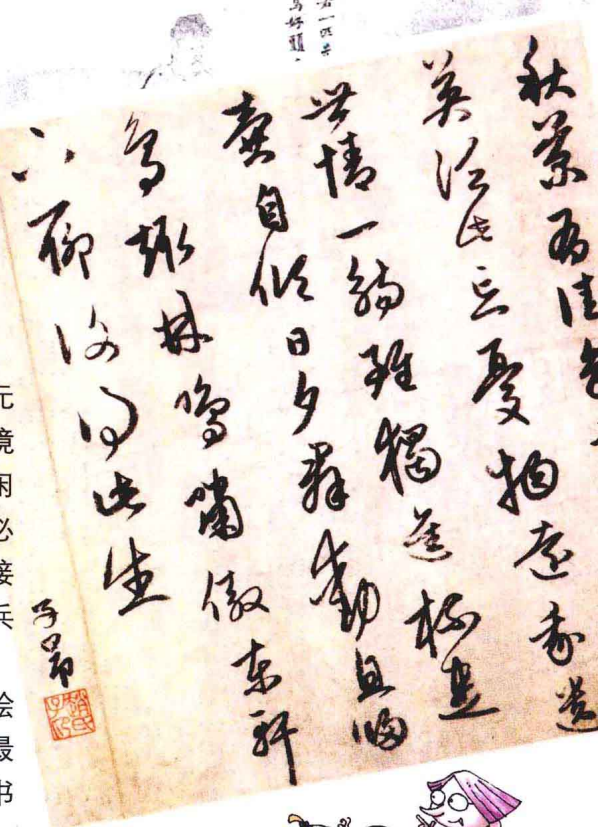 秋菊有佳色
英泛此忘憂物遠我遺
世情一觴雖獨進杯盡
壺自傾日夕群動息歸
鳥趨林鳴嘯傲東軒
下聊復得此生
子昂
趙氏子昂
元
境
闲
必
接
兵
绘
最
书